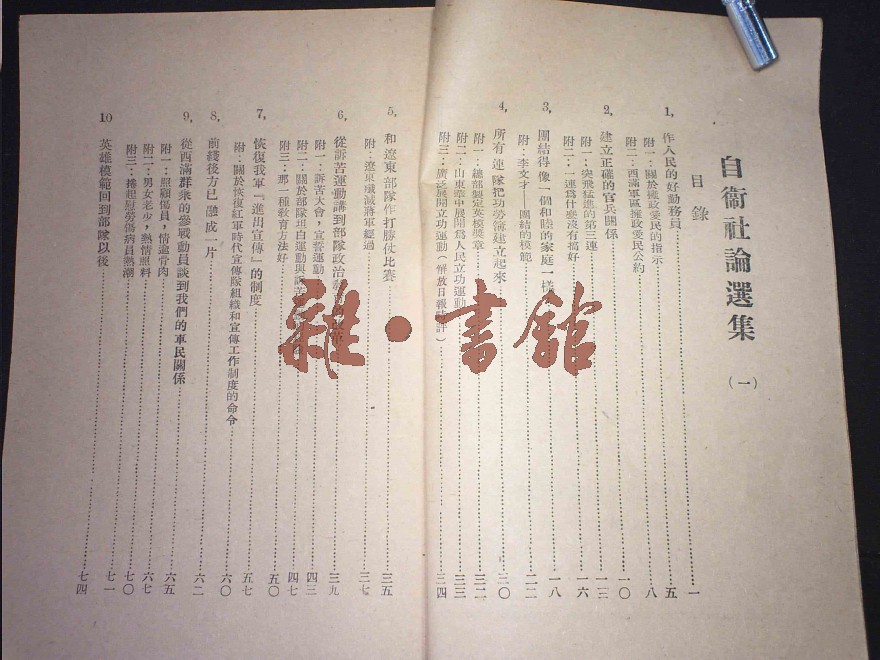 自衛社論選集
(一)
目錄
1, 作人民的好勤務員……一
附一：關於擁政愛民的指示……五
附二：西滿軍區擁政愛民公約……八
2, 建立正確的官兵關係……一〇
附一：突飛猛進的第三連……一三
附二：一連爲什麼沒有搞好……一六
3, 團結得像一個和睦的家庭一樣……一八
附：李文才——團結的模範……二二
4, 所有連隊把功勞簿建立起來……三〇
附一：總部制定英模獎章……三二
附二：山東華中展開爲人民立功運動……三三
附三：廣泛展開立功運動(解放日報評)……三四
5, 和遼東部隊作打勝仗比賽……三五
附：遼東殲滅蔣軍經過……三七
6, 從訴苦運動講到部隊政治……三九
附一：訴苦大會，宣誓運動……四三
附二：關於部隊坦白運動與訴苦……四七
附三：那一種敎育方法好……五〇
7, 恢復我軍『進出宣傳』的制度……五七
附：關於恢復紅軍時代宣傳隊組織和宣傳工作制度的命令……六〇
8, 前綫後方已融成一片……六二
9, 從西滿群衆的參戰動員談到我們的軍民關係……六五
附一：照顧傷員，情逾骨肉……六七
附二：男女老少，熱情照料……七〇
附三：捲起慰勞傷病員熱潮……七一
10 英雄模範回到部隊以後……七四
雜·書館